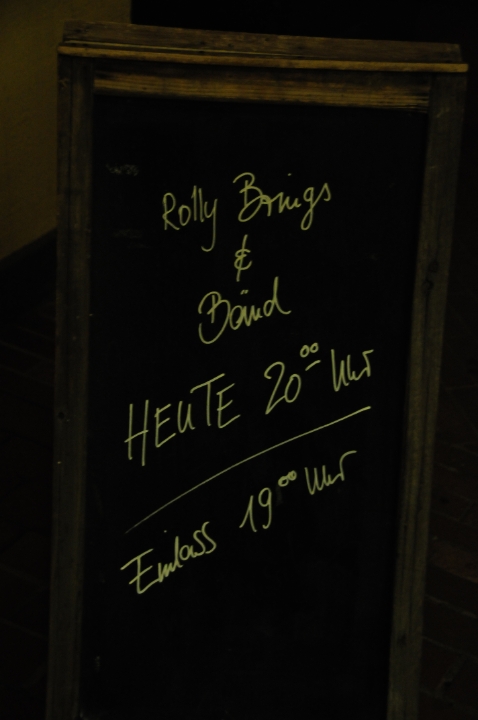 Rolly Brings
&
Bänd
HEUTE 20⁰⁰ Uhr
Einlass 19⁰⁰ Uhr